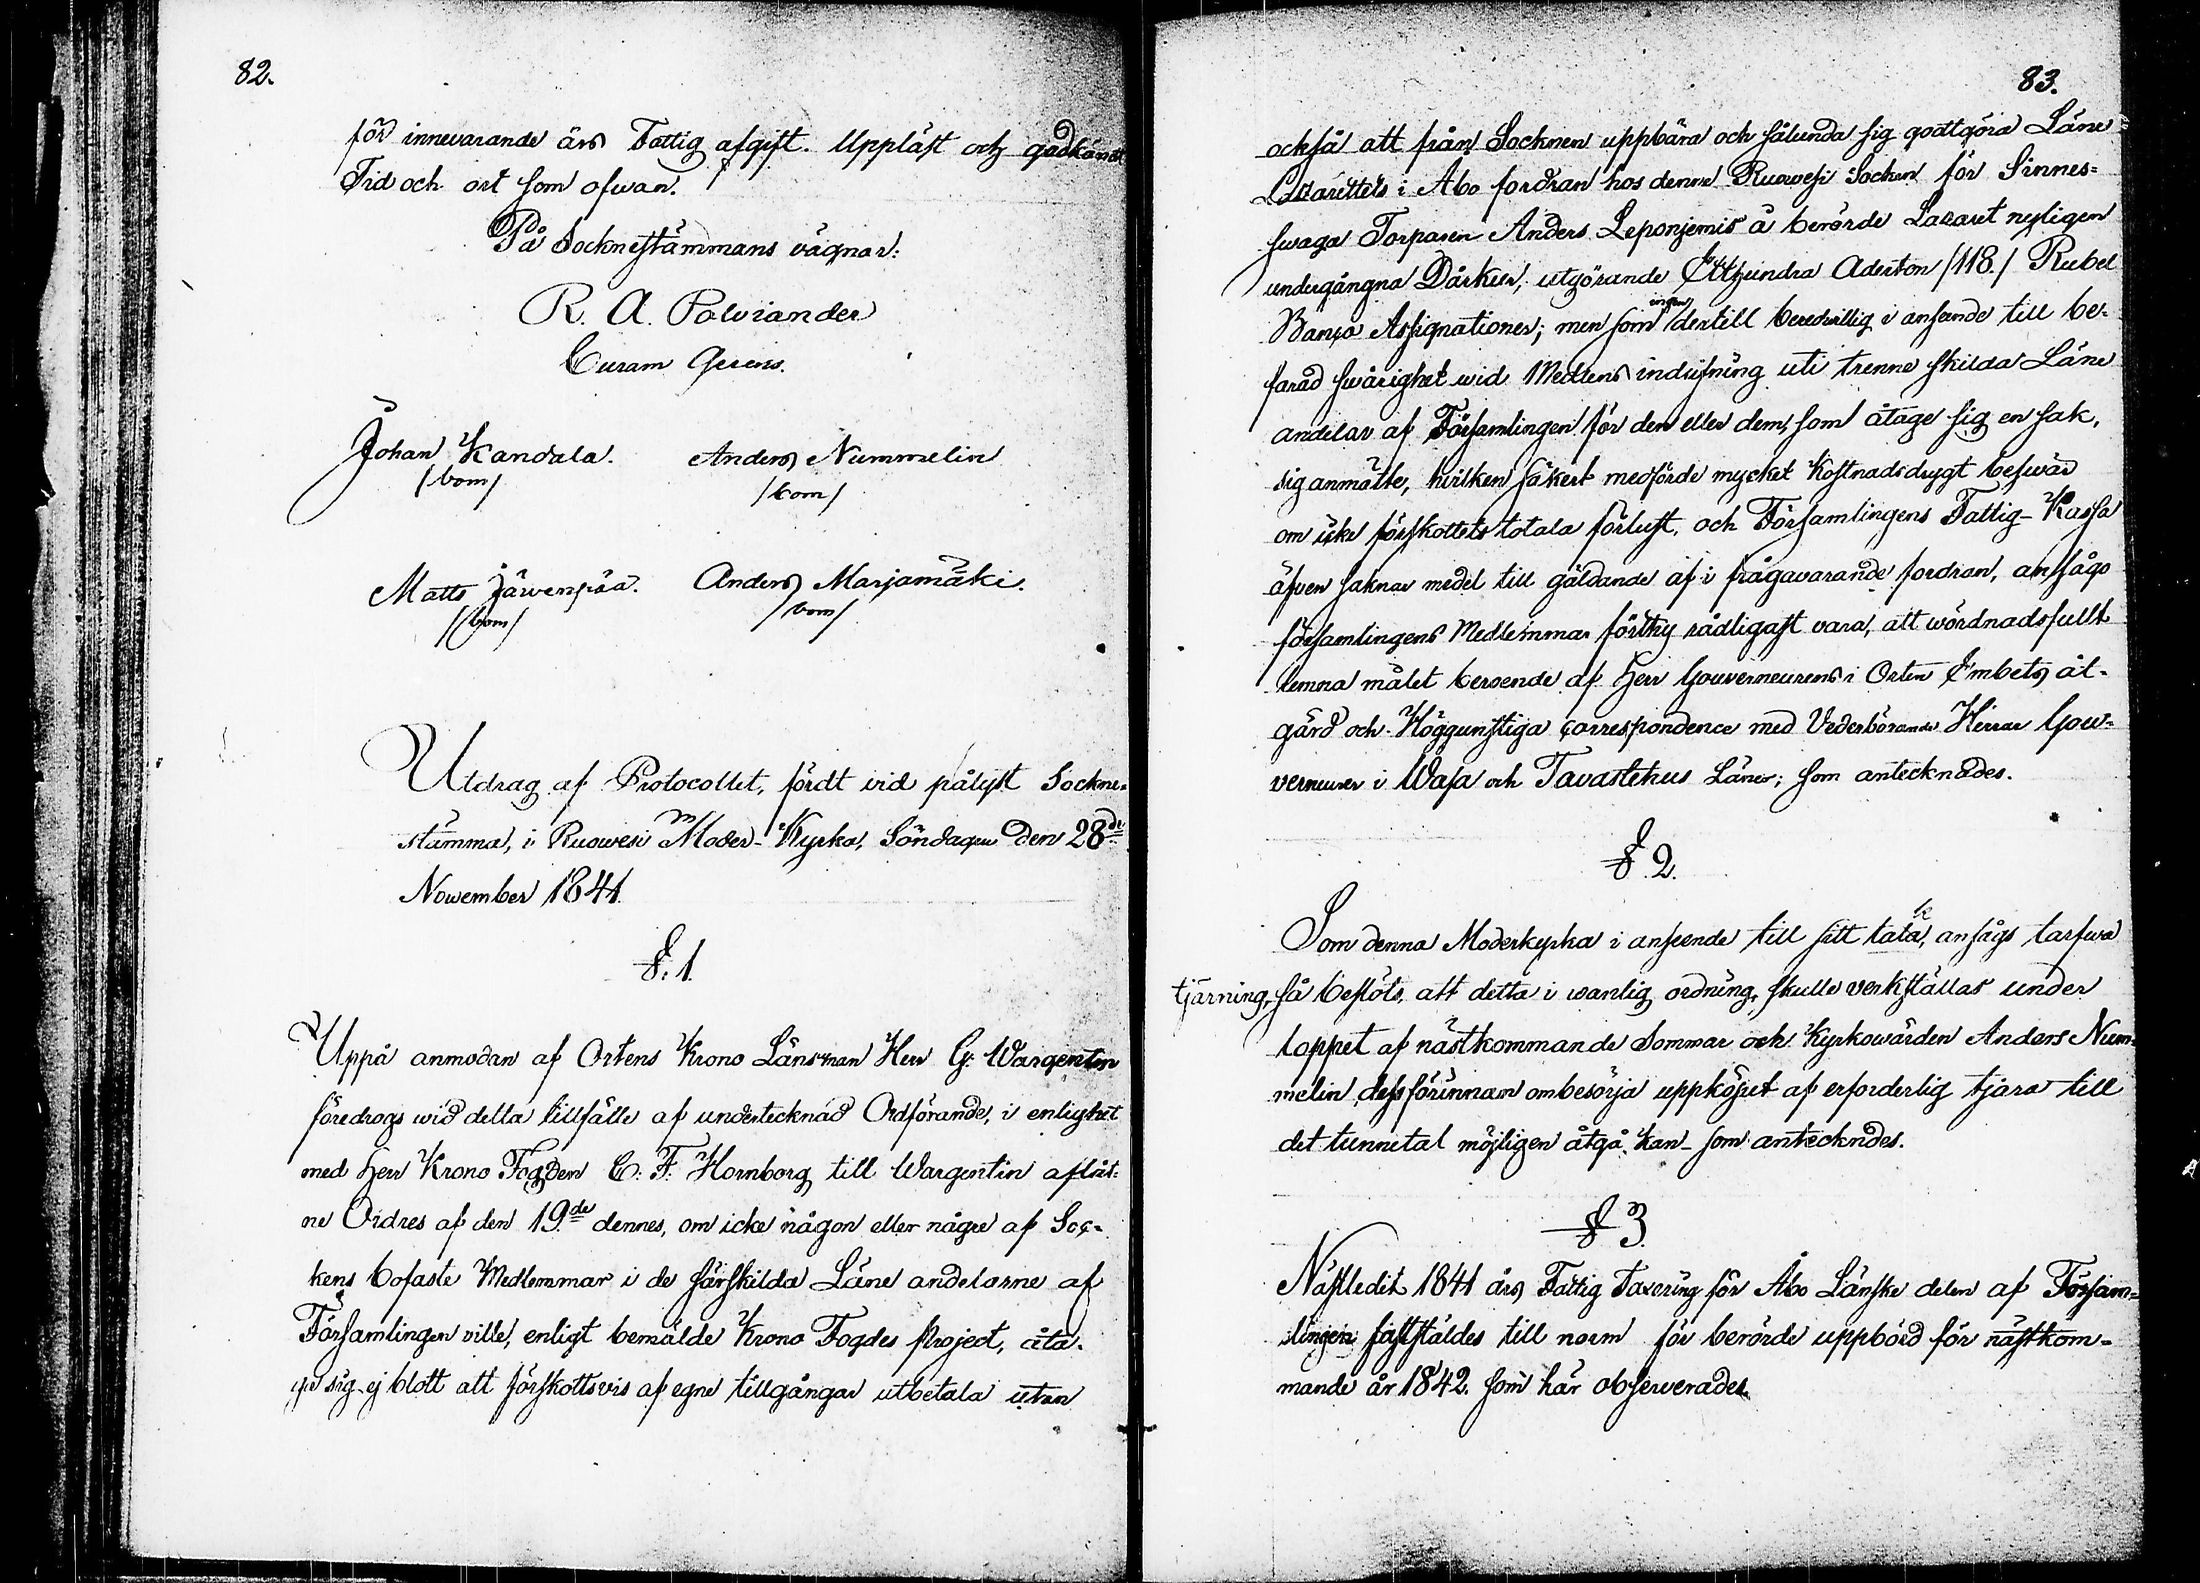 82.
för innevarande års Fattig afgift. Uppläst och godkändt
Tid och ort som ofwan.
På Socknestämmans vägnar:
R. A. Polviander
Curam Gerens.
Johan Kandala. Anders Nummelin
/bom/ /bom/
Matts Jäwenpää. Anders Marjamäki.
/bom/ /bom/
Utdrag af Protocollet, fördt vid pålyst Sockne-
stämma, i Ruowesi Moder-Kyrka, Söndagen den 28de
November 1841.
§. 1.
Uppå anmodan af Ortens Krono Länsman Herr G: Wargentin
föredrogs wid detta tillfälle af undertecknad Ordförande, i enlighet
med Herr Krono Fogden C. F. Hornborg till Wargentin aflåt-
ne Ordres af den 19de dennes, om icke någon eller någre af Soc-
kens bofaste Medlemmar i de särskilda Läne andelarne af
Församlingen ville, enligt bemälde Krono Fogdes project, åta-
ge sig ej blott att förskottsvis af egne tillgångar utbetala utan
83.
också att från Socknen uppbära och sålunda sig godtgöra Läne
Lazarettets i Åbo fordran hos denne Ruowesi Socken för Sinnes-
swaga Torparen Anders Leponjemis å berörde Lazaret nyligen
undergångna Dårkur, utgörande Etthundra Aderton /118./ Rubel
Banco Assignationer; men som ingen dertill beredwillig i anseende till be-
farad swårighet wid Medlens indrifning uti trenne skilda Läne
andelar af Församlingen för den eller dem, som åtage sig en sak,
sig anmälte, hvilken säkert medförde mycket kostnadsdrygt beswär
om icke förskottets totala förlust, och Församlingens Fattig-Kassa
äfven saknar medel till gäldande af i frågavarande fordran, ansågs
församlingens Medlemmar förthy rådligast vara, att wördnadsfullt
lemna målet beroende af Herr Gouverneurens i Orten Embets åt-
gärd och Höggunstiga correspondence med Vederbörande Herrar Gou-
verneurer i Wasa och Tavastehus Läner; som antecknades.
§ 2.
Som denna Moderkyrka i anseende till sitt tak, ansågs tarfwa
tjärning, så beslöts, att detta i wanlig ordning, skulle verkställas under
loppet af nästkommande Sommar och Kyrkowärden Anders Num-
melin dessförinnan ombesörja uppköpet af erforderlig tjära till
det tunnetal möjligen åtgå kan - som antecknades.
§ 3.
Näfledit 1841 års Fattig Taxering för Åbo Länske delen af Försam-
lingen fastställdes till norm för berörde uppbörd för nästkom-
mande år 1842. som här observerades.